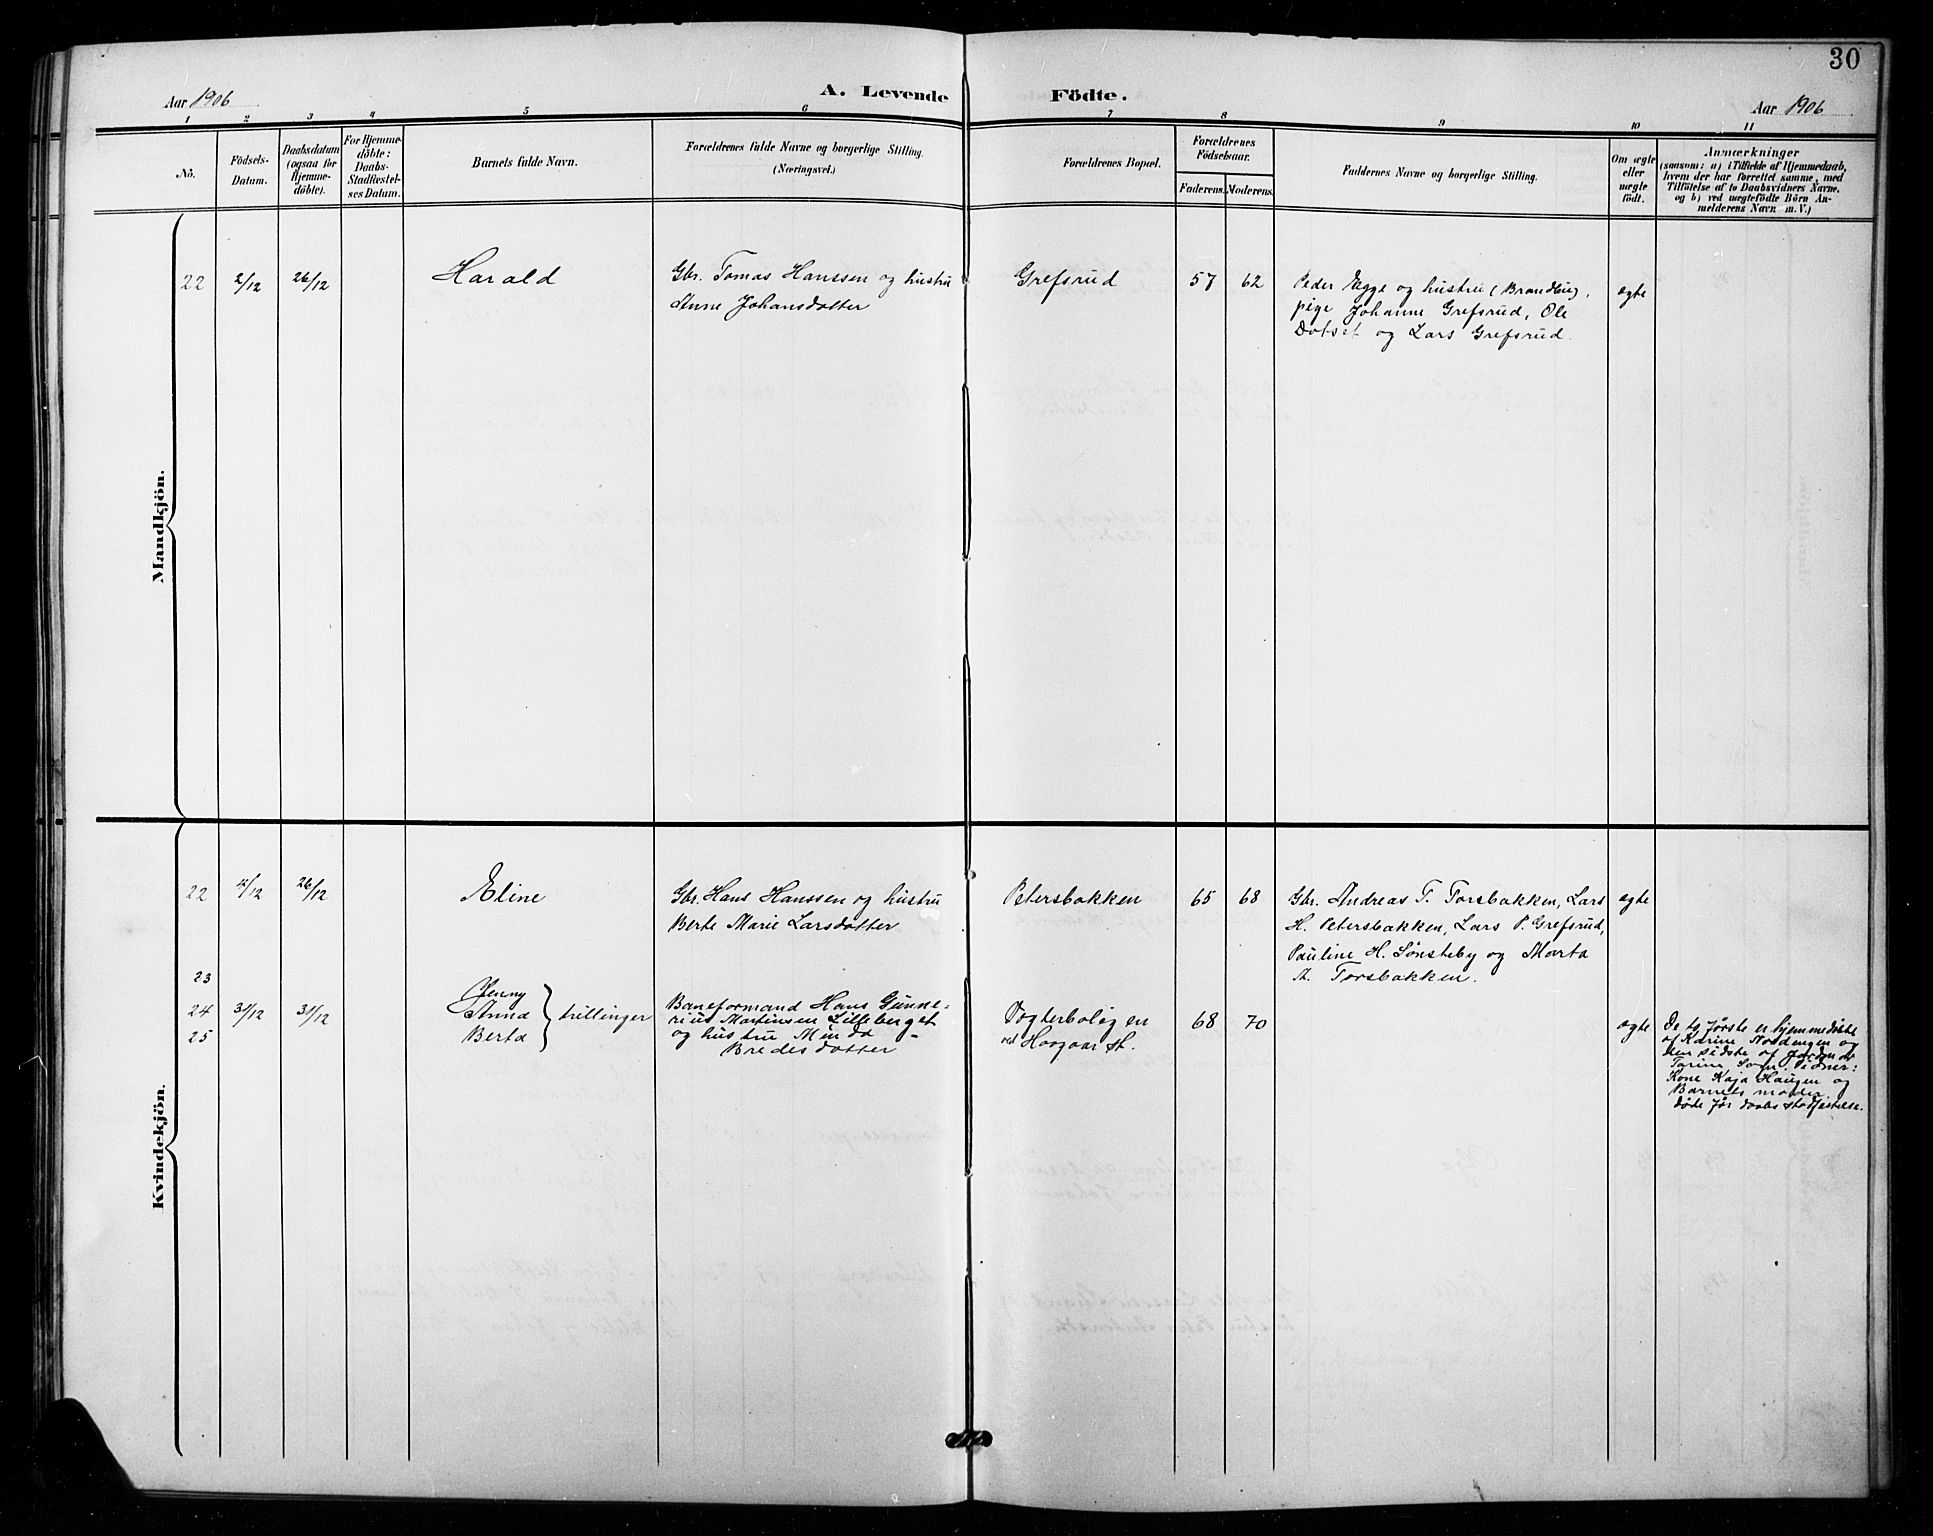 30
Aar 1906
A. Levende Födte.
Aar 1906
1 2 3 4 5 6 7 8 9 10 11
No.
Födsels-
Datum.
Daabsdatum
(ogsaa for
Hjemme-
döbte).
For Hjemme-
döbte:
Daabs-
Stadfæstel-
ses Datum.
Barnets fulde Navn.
Forældrenes fulde Navne og borgerlige Stilling.
(Næringsvei.)
Forældrenes Bopæl.
Forældrenes
Födselsaar.
Faderens. Moderens.
Faddernes Navne og borgerlige Stilling.
Om ægte
eller
uægte
født.
Anmærkninger
(saasom: a) i Tilfælde af Hjemmedaab,
hvem der har forrettet samme, med
Tilföielse af to Daabsvidners Navne,
og b) ved uægtefödte Börn An-
melderens Navn m. V.)
Mandkjön.
22 2/12 26/12 Harald
Gbr. Tomas Hanssen og hustru
Anne Johansdotter
Grefsrud 57 62
Peder Egge og hustru (Brandbu),
pige Johanne Grefsrud, Ole
Dotset og Lars Grefsrud.
egte
Kvindekjön.
22 4/12 26/12 Eline
Gbr. Hans Hanssen og hustru
Berte Marie Larsdotter
Petersbakken 65 68
Gbr. Andreas T. Torsbakken, Lars
H. Petersbakken, Lars P. Grefsrud,
Pauline H. Sønsteby og Marta
A. Torsbakken.
egte
23 Jenny
24 31/12 31/12 Anna trillinger
25 Berta
Baneformand Hans Gunne-
rius Martinsen Lilleberget
og hustru Minda
Bredesdotter
Vogterboligen
ved Hovgaar st.
68 70
egte
De to første er hjemmedøbte
af Karine Nordengen og
den sidste af Jordmor
Torine Vidner:
Kone Kaja Haugen og
Barnets moder.
døde før daabs stadfæstelse.